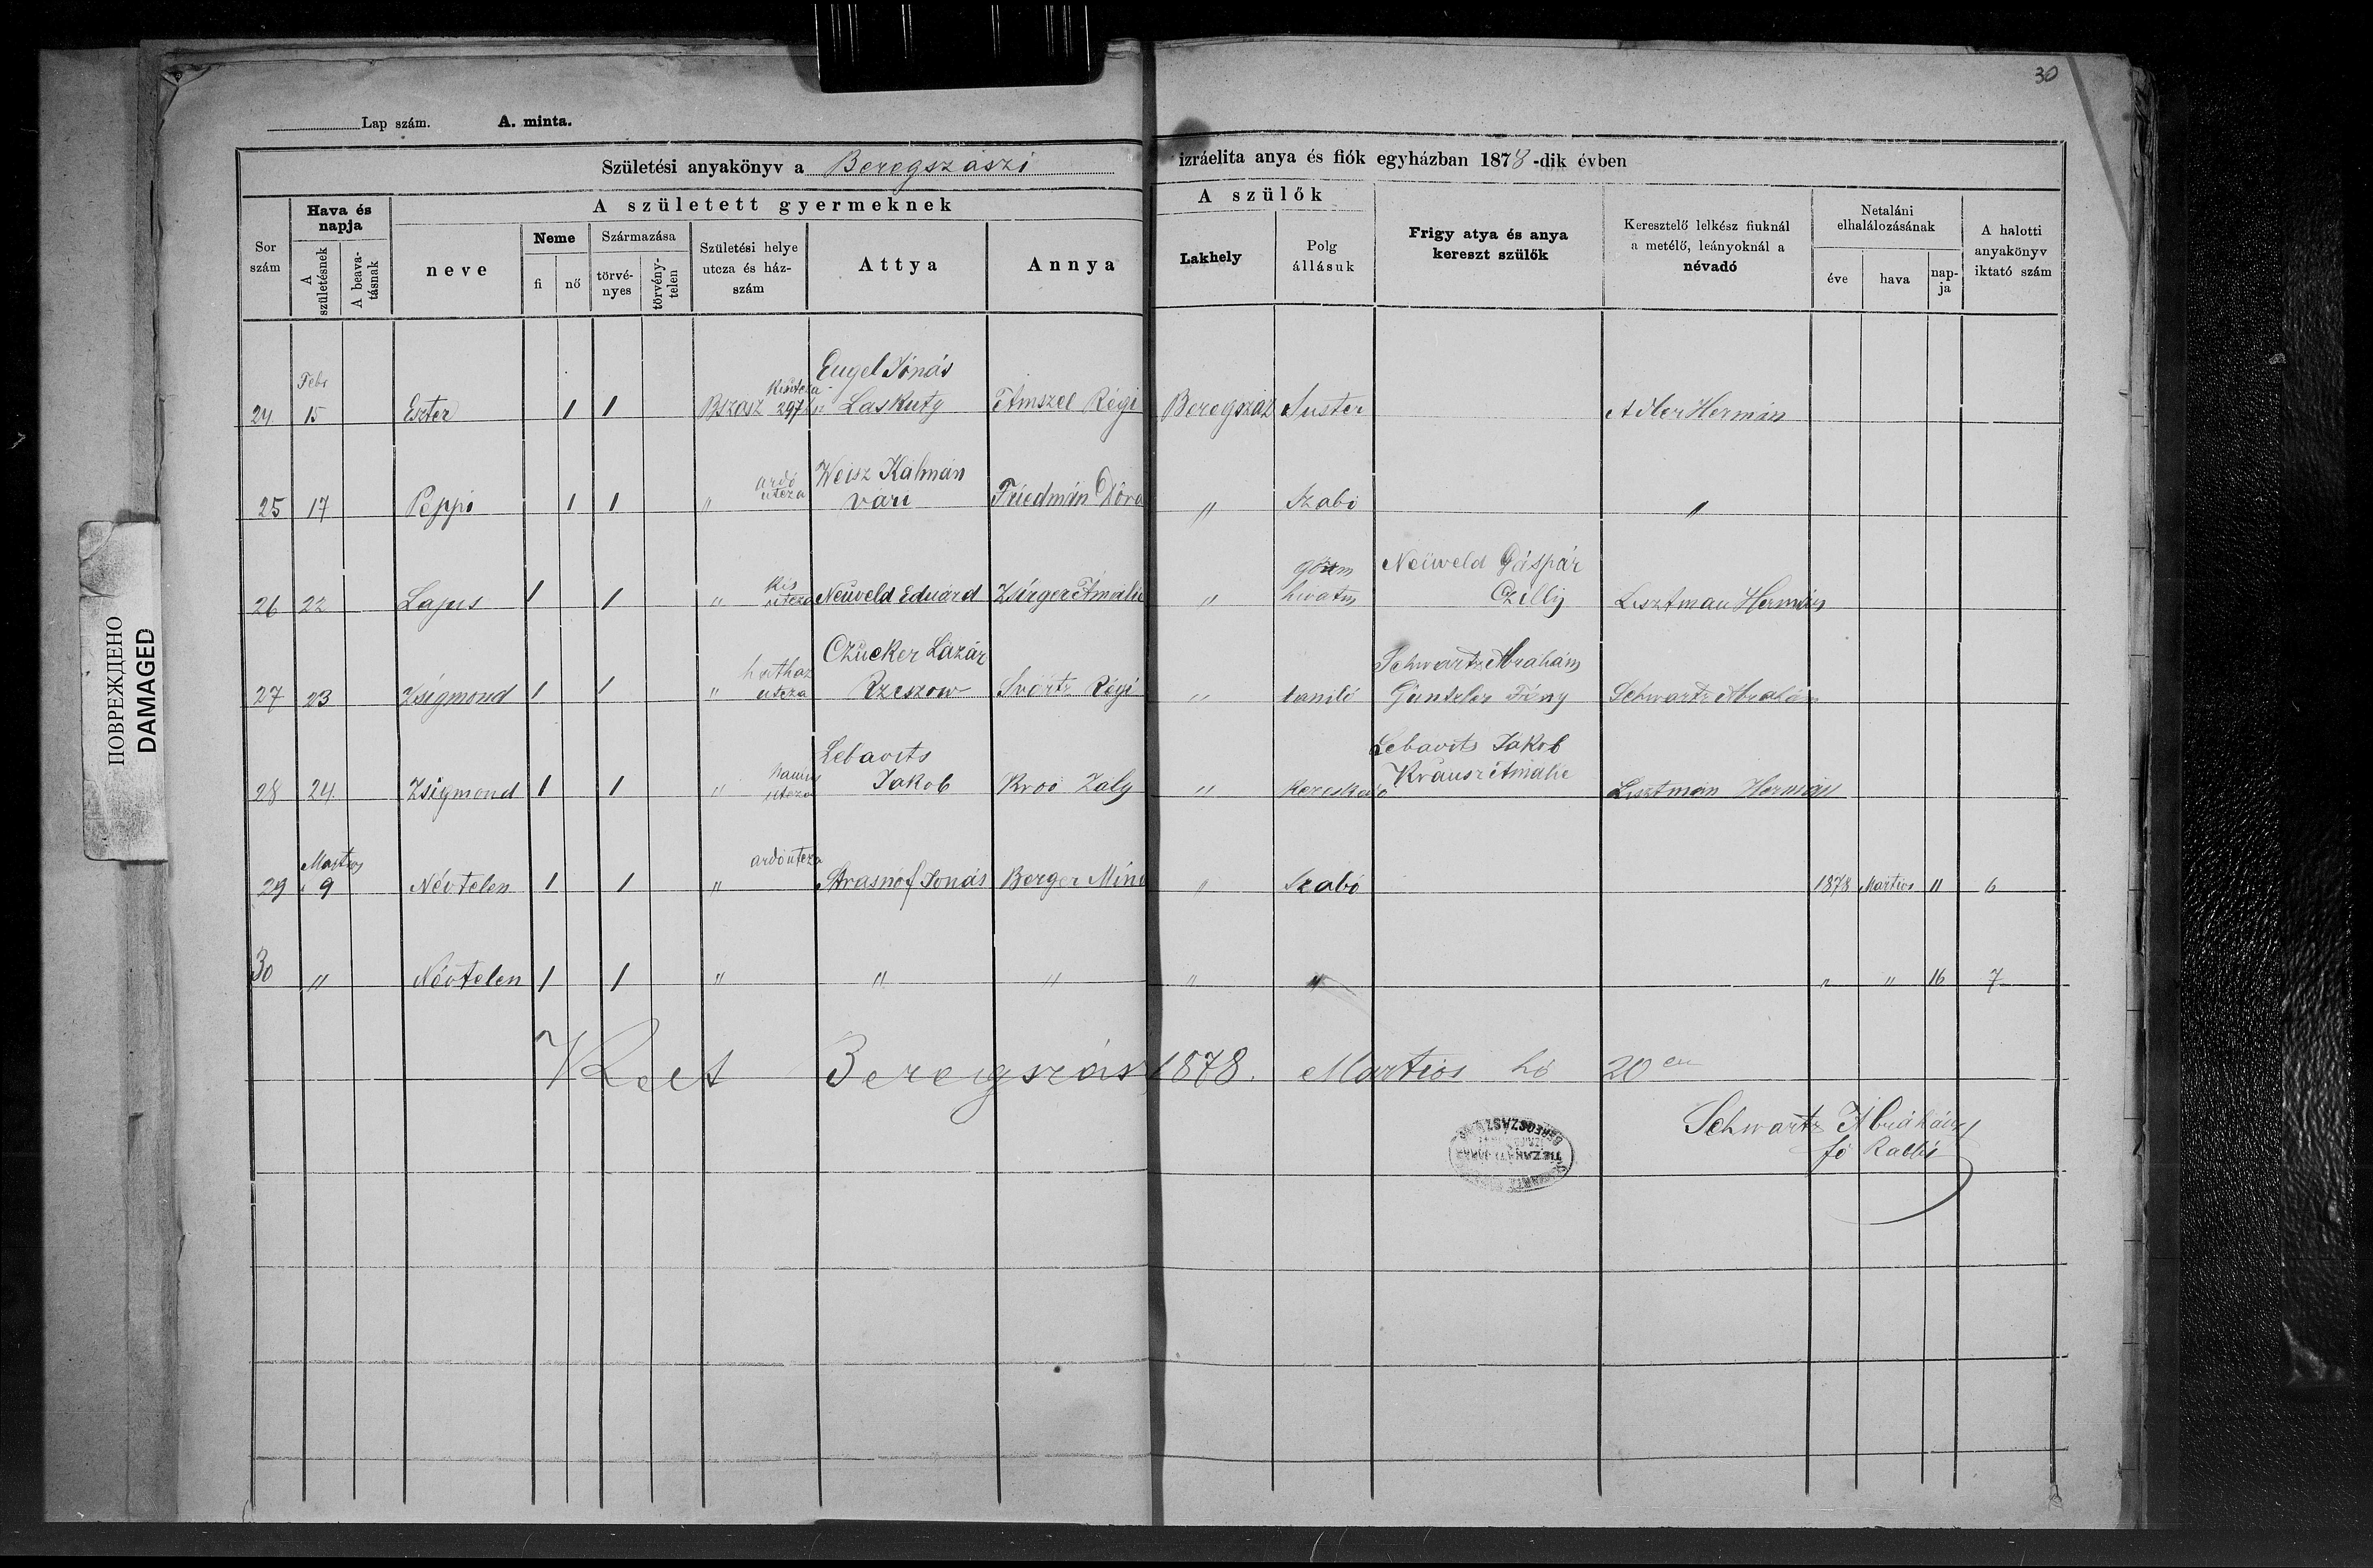 30
Lap szám. A. minta.
Születési anyakönyv a Beregszászi izráelita anya és fiók egyházban 1878-dik évben
Sor szám
Hava és napja
A születésnek
A beava-tásnak
A született gyermeknek
neve
Neme
fi
nő
Származása
törvé-nyes
törvény-telen
Születési helye utcza és ház-szám
Attya
Annya
A szülők
Lakhely
Polg állásuk
Frigy atya és anya kereszt szülők
Keresztelő lelkész fiuknál a metélő, leányoknál a névadó
Netaláni elhalálozásának
éve
hava
nap-ja
A halotti anyakönyv iktató szám
24 Febr 15 Eszter 1 1 Bszasz Kisutcza 297 Engel Jónás Laskuty Amszel Régi Beregszaz Suster Adler Hermán
25 17 Peppi 1 1 " ardó utcza Weisz Kálmán vári Friedmán Dóra " Szabó "
26 22 Lajos 1 1 " Kis utcza Neuveld Eduárd Amália " Neuveld Gáspár Czilli Lisztman Hermán
27 23 Zsigmond 1 1 " utcza Czucker Lázár Rzeszow Svartz Régi " tanító Schwartz Abrahám Fány Schwartz Abrahám
28 24. Zsigmond 1 1 " utcza Lebavits Jakob Kroó Zaly " Kereskedő Lebavits Jakob Krausz Amalie Lisztmán Hermán
29 Martzos 9 Névtelen 1 1 " ardó utcza Strasnof Jonás Berger Mina " Szabó 1878 Martios 11 6
30 " Névtelen 1 1 " " " " " " " 16 7
Kelt Beregszász 1878. Martios hó 20 án
Schwartz Abrahám
fő Rabbi
BEREGSZÁSZ
ПОВРЕЖДЕНО
DAMAGED